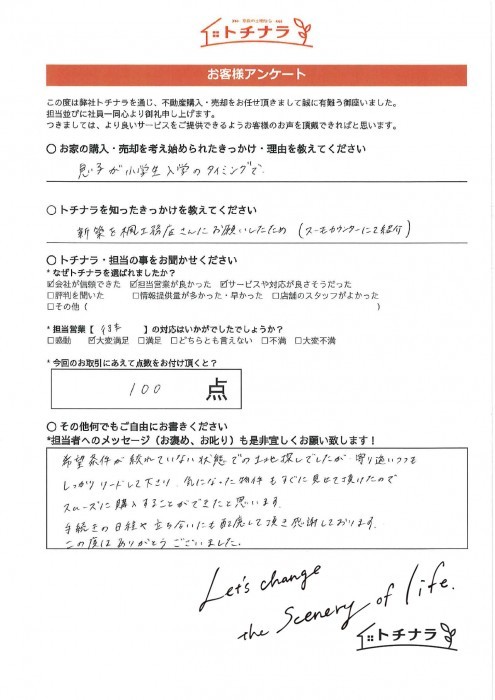 トチナラ
お客様アンケート
この度は弊社トチナラを通じ、不動産購入・売却をお任せ頂きまして誠に有難う御座いました。
担当並びに社員一同心より御礼申し上げます。
つきましては、より良いサービスをご提供できるようお客様のお声を頂戴できればと思います。
〇 お家の購入・売却を考え始められたきっかけ・理由を教えてください
息子が小学生入学のタイミングで
〇 トチナラを知ったきっかけを教えてください
新築を楓工務店さんにお願いしたため（スーモカウンターにて紹介）
〇 トチナラ・担当の事をお聞かせください
* なぜトチナラを選ばれましたか？
☑会社が信頼できた ☑担当営業が良かった ☑サービスや対応が良さそうだった
□評判を聞いた □情報提供量が多かった・早かった □店舗のスタッフがよかった
□その他（ ）
* 担当営業【 】の対応はいかがでしたでしょうか？
□感動 ☑大変満足 □満足 □どちらとも言えない □不満 □大変不満
* 今回のお取引にあえて点数をお付け頂くと？
100 点
〇 その他何でもご自由にお書きください
*担当者へのメッセージ（お褒め、お叱り）も是非宜しくお願い致します！
希望条件が絞れていない状態での土地探しでしたが 寄り添いつつも
しっかりリードして下さり、気になった物件もすぐに見せて頂けたので
スムーズに購入することができたと思います。
手続きの日程や立ち合いにも配慮して頂き感謝しております。
この度はありがとうございました。
Let's change
the scenery of life.
トチナラ